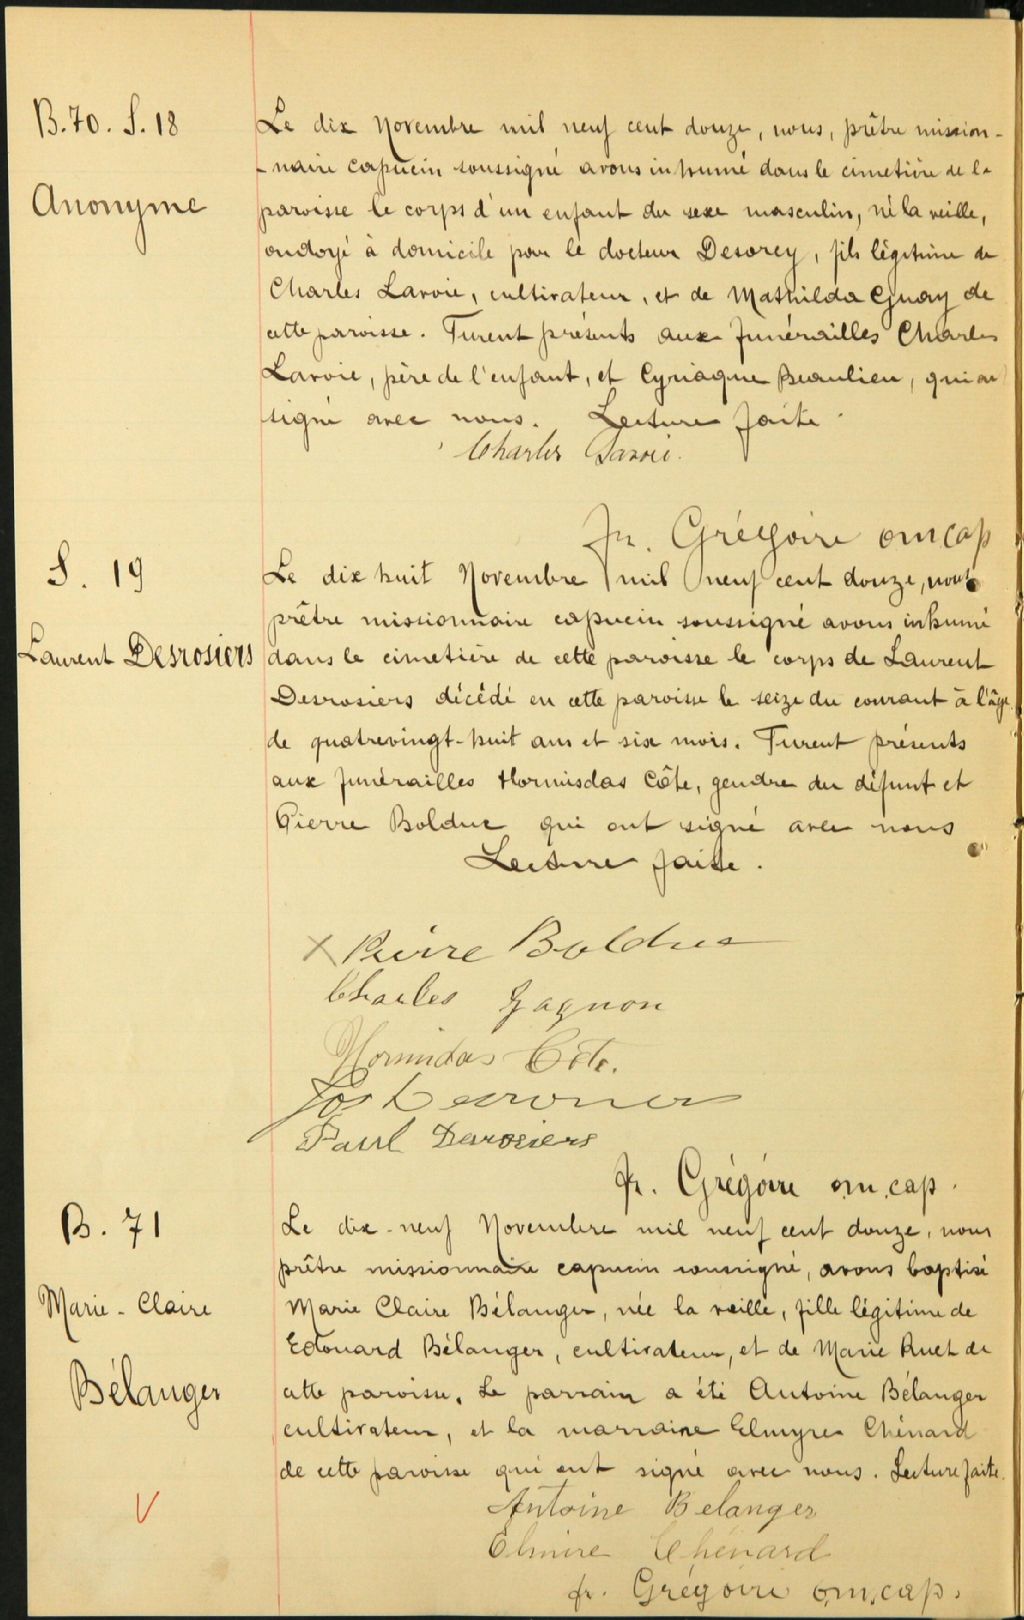 B.70. S. 18
Anonyme
Le dix Novembre mil neuf cent douze, nous, prêtre mission-
-naire capucin soussigné avons inhumé dans le cimetière de la
paroisse le corps d'un enfant du sexe masculin, né la veille,
ondoyé à domicile par le docteur Desorcy, fils légitime de
Charles Lavoie, cultivateur, et de Mathilda Guay de
cette paroisse. Furent présents aux funérailles Charles
Lavoie, père de l'enfant, et Cyriaque Beaulieu, qui
signé avec nous. Lecture faite
Charles Lavoie.
fr. Grégoire om cap
S. 19
Laurent Desrosiers
Le dix huit Novembre mil neuf cent douze, nous
prêtre missionnaire capucin soussigné avons inhumé
dans le cimetière de cette paroisse le corps de Laurent
Desrosiers décédé en cette paroisse le seize du courant à l'âge
de quatrevingt-huit ans et six mois. Furent présents
aux funérailles Hormisdas Côte, gendre du défunt et
Pierre Bolduc qui ont signé avec nous
Lecture faite.
X Pierre Bolduc
Charles Gagnon
Hormidas Cote.
Jos Desrosiers
Paul Desrosiers
fr. Grégoire o.m.cap.
B. 71
Marie-Claire
Bélanger
Le dix-neuf Novembre mil neuf cent douze, nous
prêtre missionnaire capucin soussigné, avons baptisé
Marie Claire Bélanger, née la veille, fille légitime de
Edouard Bélanger, cultivateur, et de Marie Ruet de
cette paroisse. Le parrain a été Antoine Bélanger
cultivateur, et la marraine Elmyre Chénard
de cette paroisse qui ont signé avec nous. Lecture faite.
Antoine Belanger
Elmire Chénard
fr. Grégoire o.m.cap.